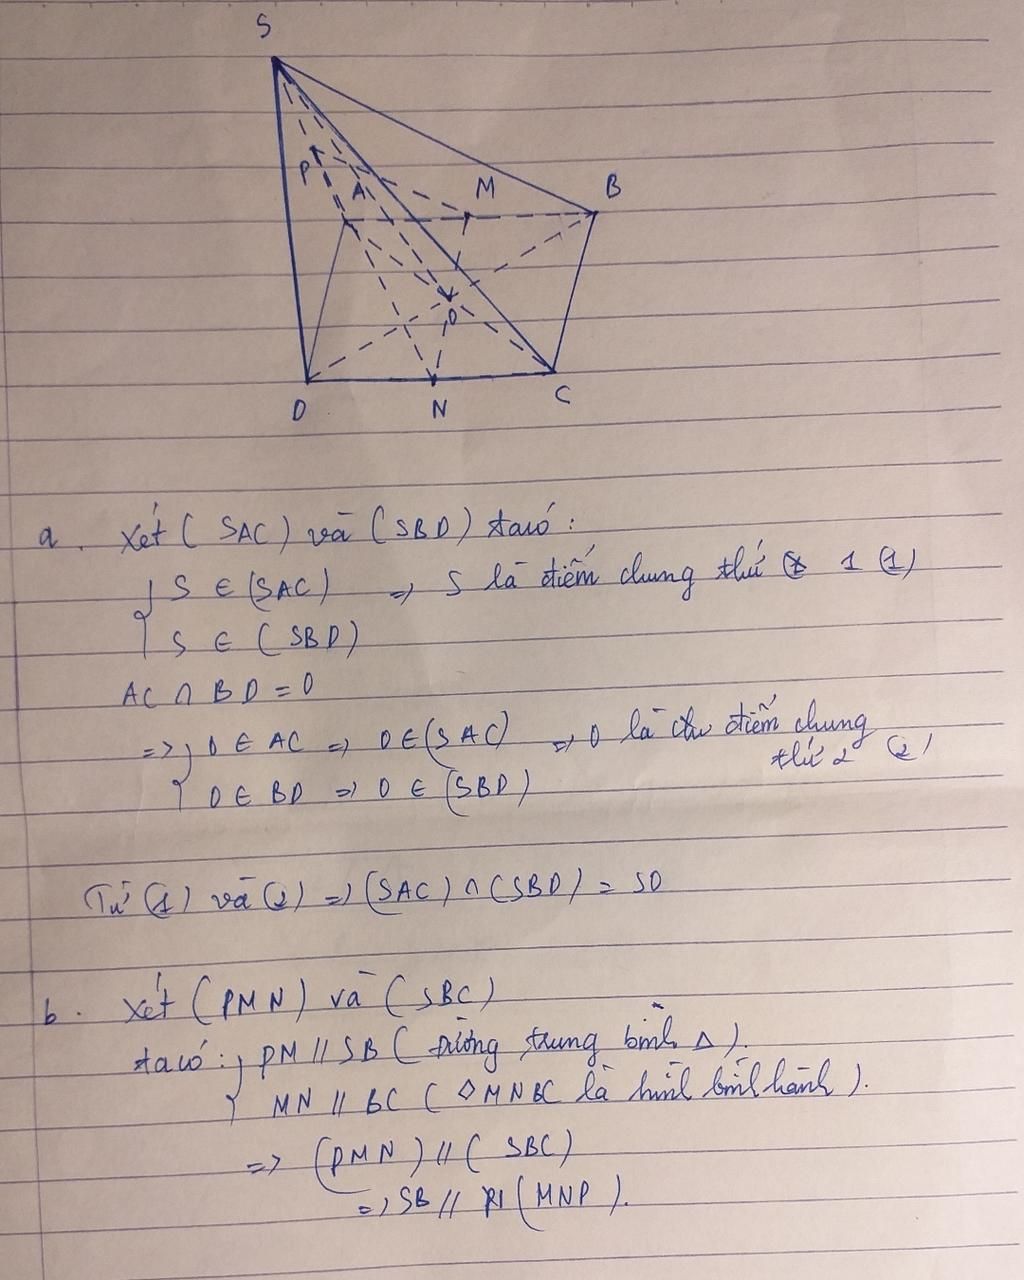 S
P
A
M
B
O
D
N
C
a. Xét (SAC) và (SBD) ta có:
{ S ∈ (SAC) => S là điểm chung thứ 1 (1)
S ∈ (SBD)
AC ∩ BD = O
=> { O ∈ AC => O ∈ (SAC) => O là điểm chung
thứ 2 (2)
O ∈ BD => O ∈ (SBD)
Từ (1) và (2) => (SAC) ∩ (SBD) = SO
b. Xét (PMN) và (SBC)
ta có: { PM // SB (đường trung bình Δ).
MN // BC (◇MNBC là hình bình hành).
=> (PMN) // (SBC)
=> SB // (MNP).